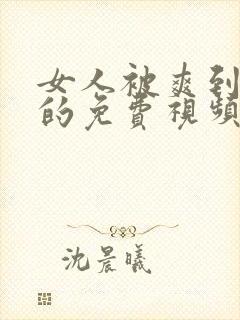 女人被爽到
的免費視頻
沈晨曦